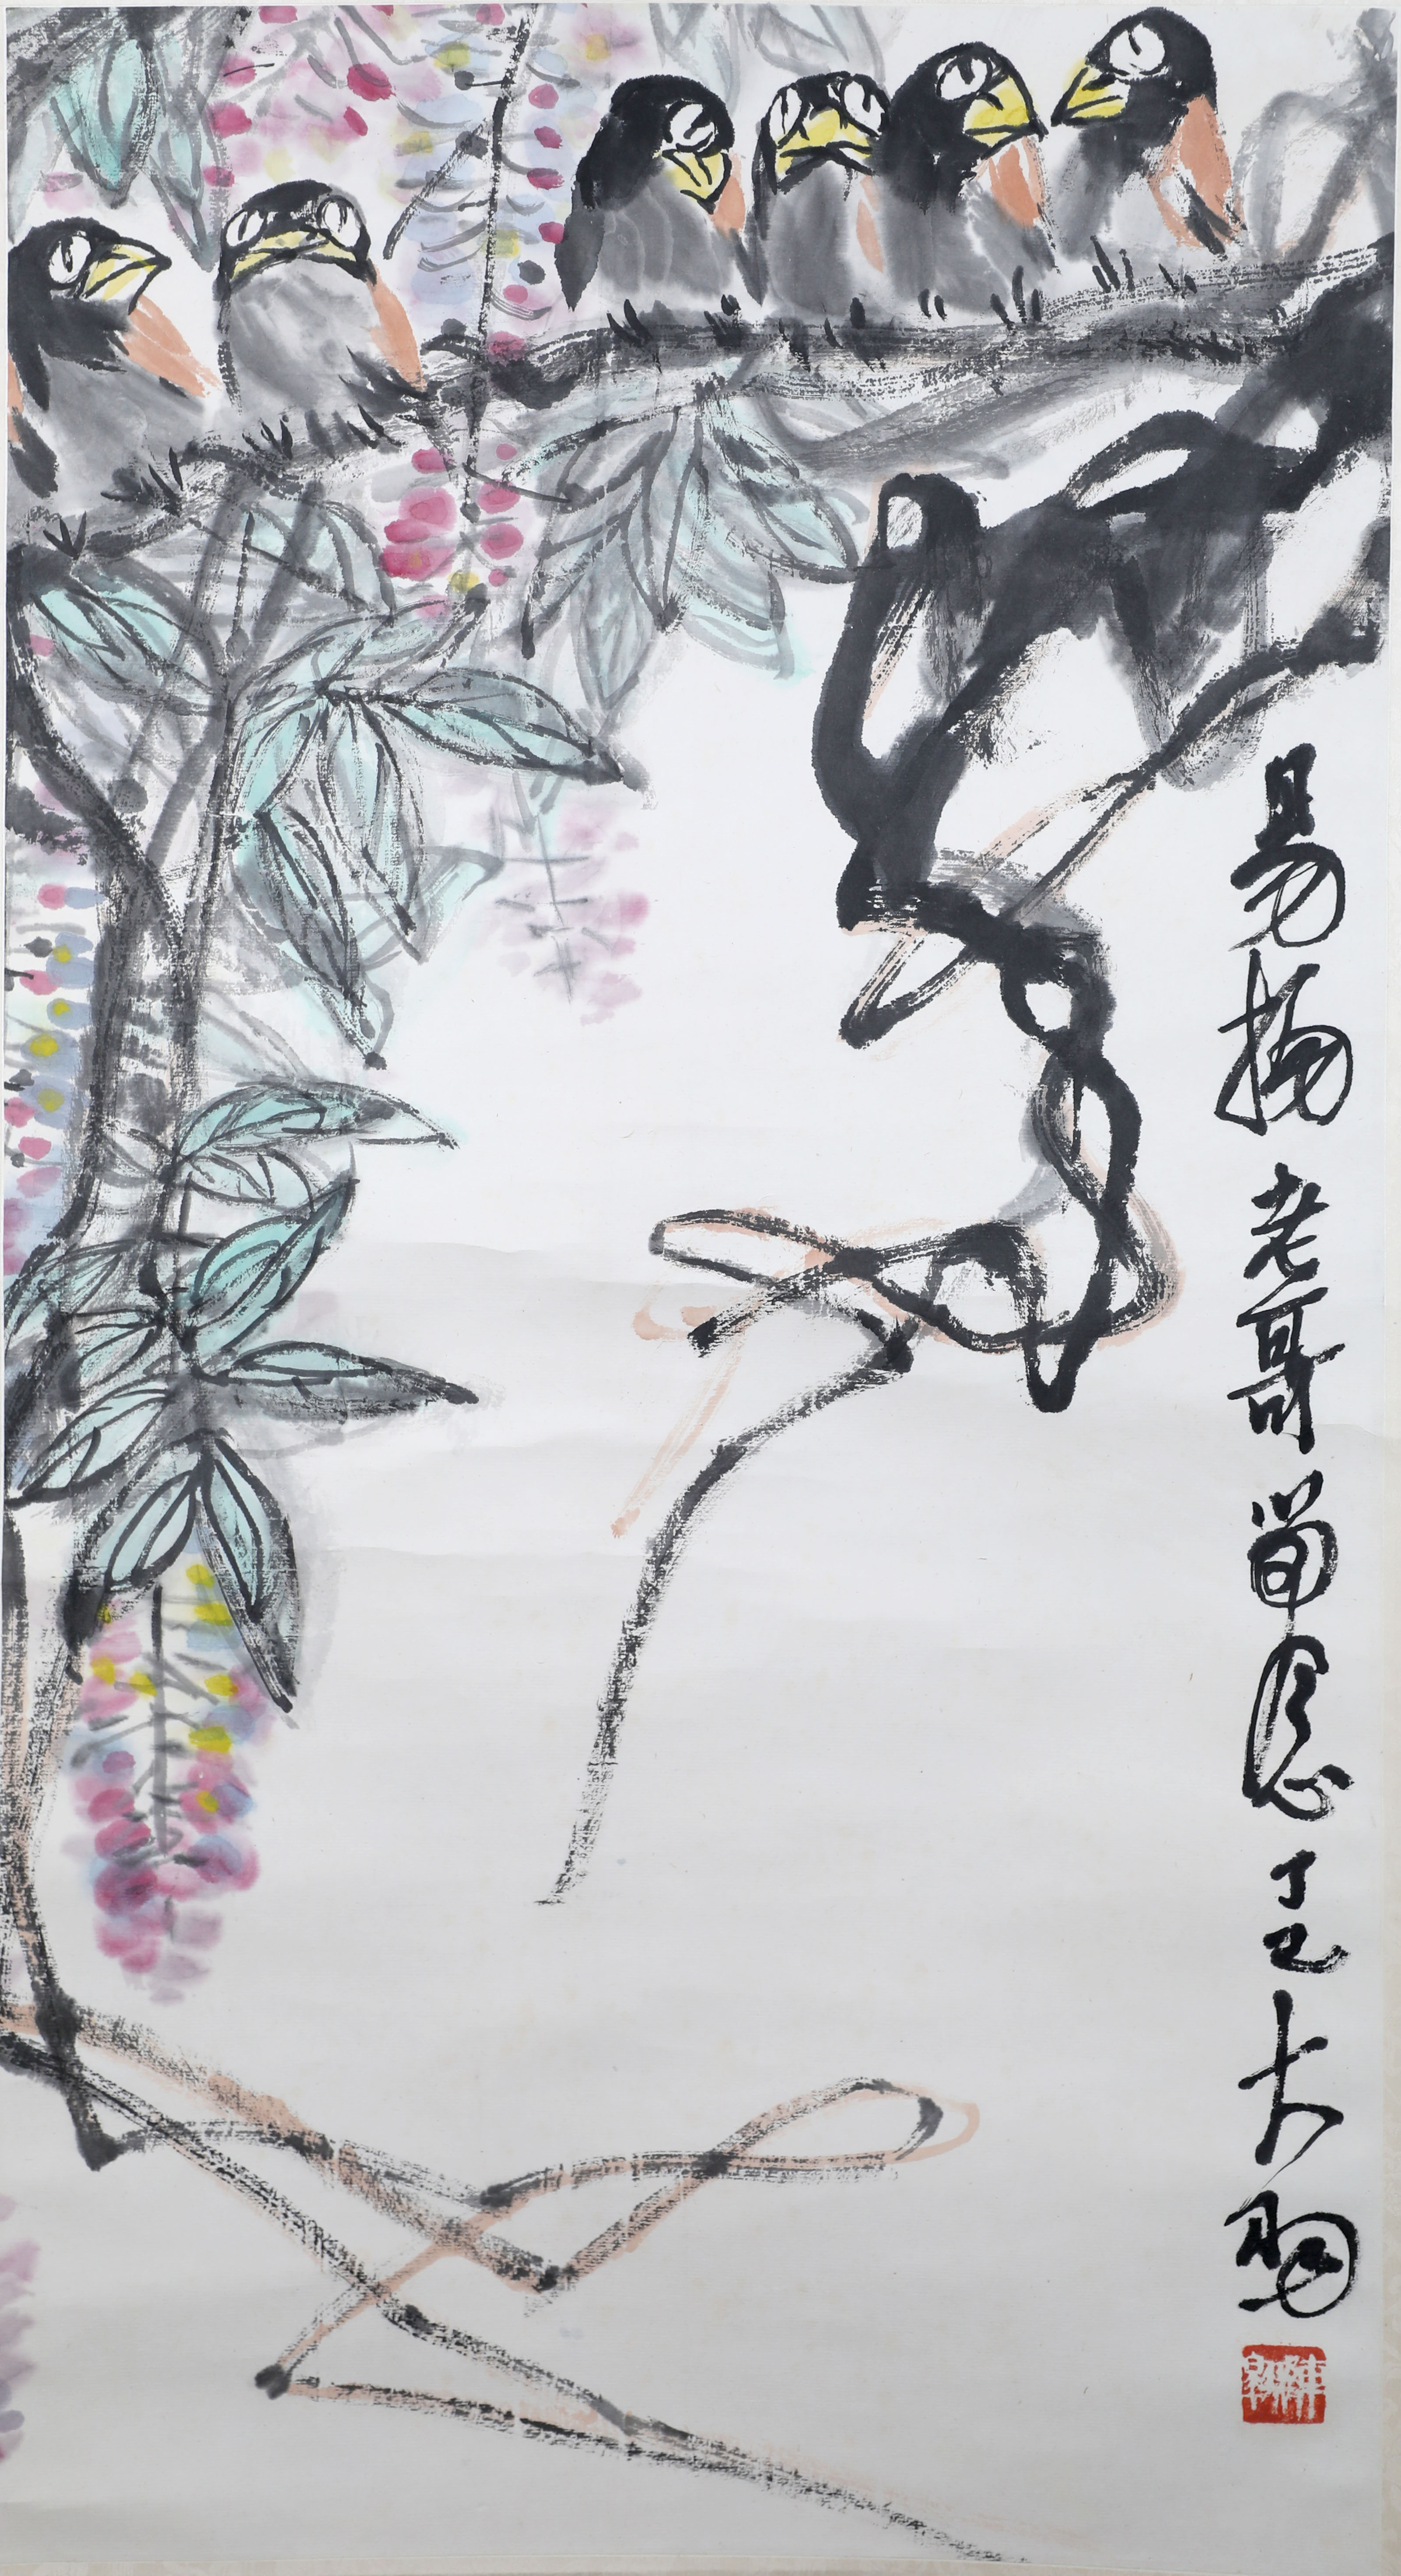 易揚老哥留念丁巳大羽